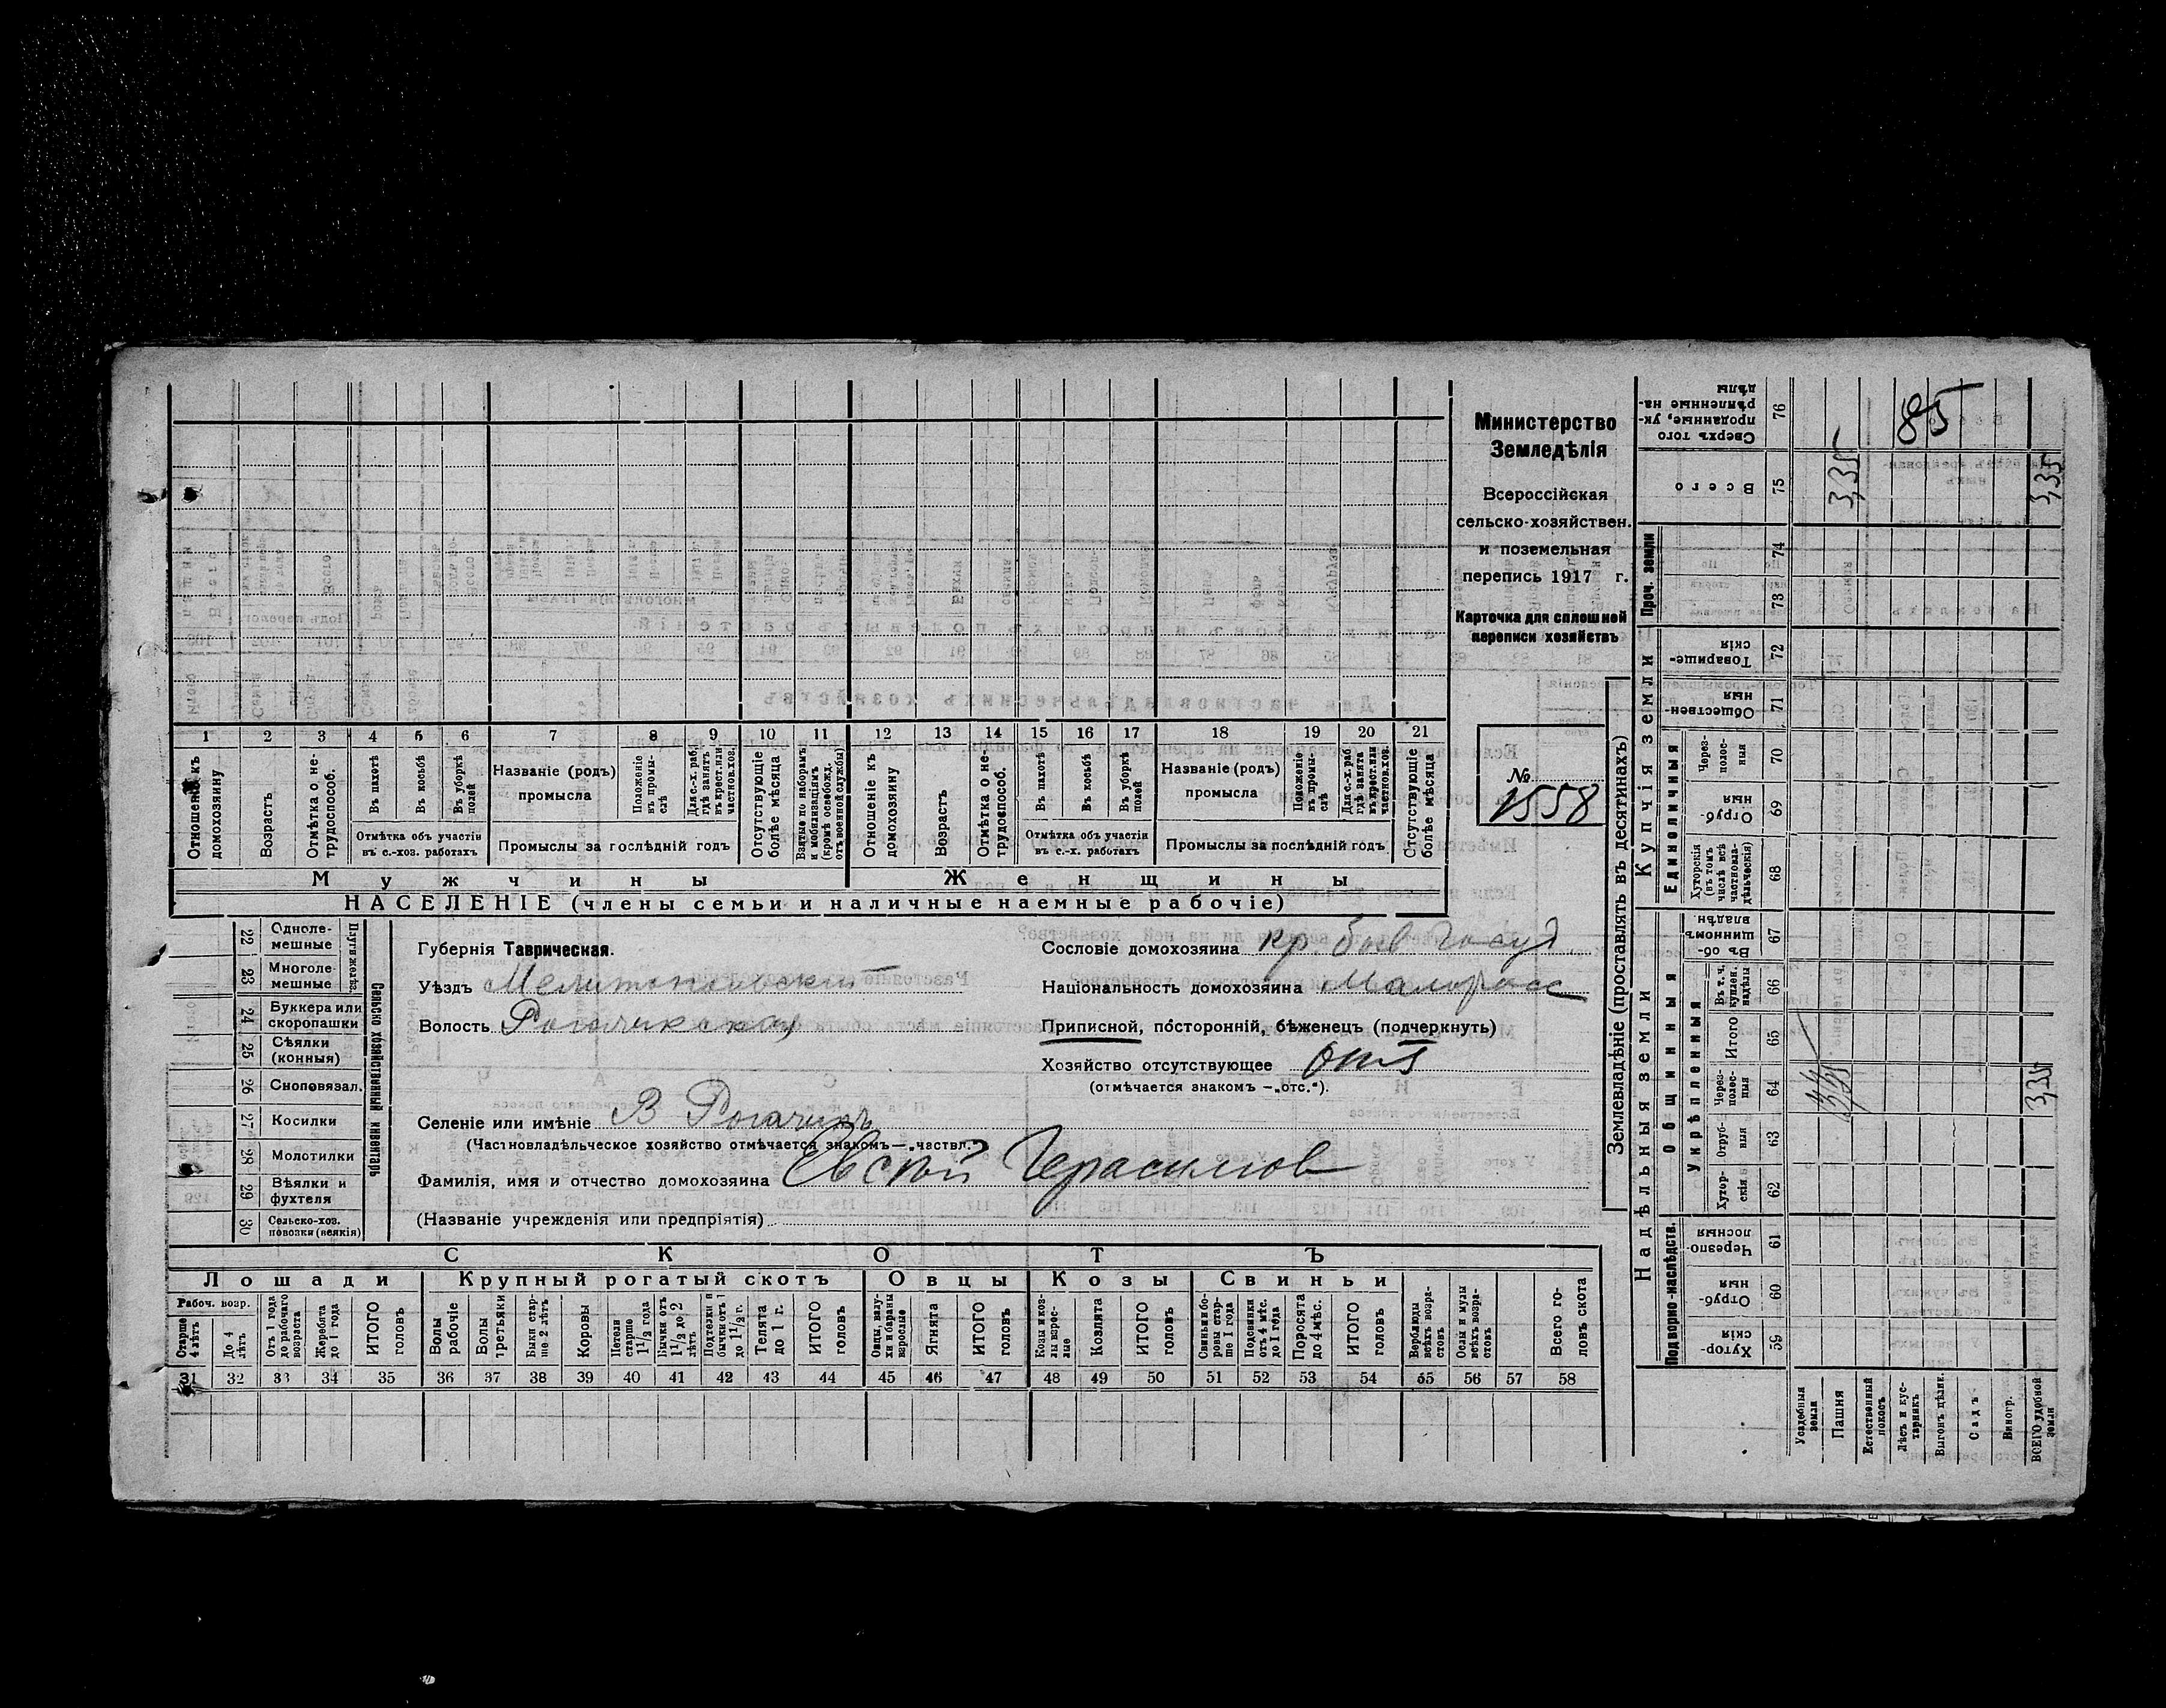 Министерство
Земледѣлія
Всероссійская
сельско-хозяйствен.
и поземельная
перепись 1917 г.
Карточка для сплошной
переписи хозяйствъ
№
1558
1 2 3 4 5 6 7 8 9 10 11 12 13 14 15 16 17 18 19 20 21
Отношеніе къ домохозяину
Возрастъ
Отмѣтка о не-трудоспособ.
Въ пахотѣ
Въ косьбѣ
Въ уборкѣ полей
Отмѣтка объ участіи
въ с.-хоз. работахъ
Названіе (родъ)
промысла
Положеніе въ промы-слѣ
Для с.-х. раб. гдѣ занятъ въ крест. или частнов. хоз.
Промыслы за послѣдній годъ
Отсутствующіе болѣе мѣсяца
Взятые по наборамъ и мобилизаціямъ (кромѣ освобожд. отъ военной службы)
Отношеніе къ домохозяину
Возрастъ
Отмѣтка о не-трудоспособ.
Въ пахотѣ
Въ косьбѣ
Въ уборкѣ полей
Отмѣтка объ участіи
въ с.-х. работахъ
Названіе (родъ)
промысла
Положеніе въ промы-слѣ
Для с.-х. раб. гдѣ занята въ крест. или частнов. хоз.
Промыслы за послѣдній годъ
Отсутствующіе болѣе мѣсяца
Мужчины Женщины
НАСЕЛЕНІЕ (члены семьи и наличные наемные рабочіе)
Сельско хозяйственный инвентарь
Плуги желѣз.
22 Одноле-мешные
23 Многоле-мешные
24 Буккера или скоропашки
25 Сѣялки (конныя)
26 Сноповязал.
27 Косилки
28 Молотилки
29 Вѣялки и фухтеля
30 Сельско-хоз. повозки (всякія)
Губернія Таврическая.
Уѣздъ Мелитопольскій
Волость Рогачикская
Селеніе или имѣніе В Рогачикъ
(Частновладѣльческое хозяйство отмѣчается знакомъ—„частвл.")
Фамилія, имя и отчество домохозяина Евсѣй Герасимов
(Названіе учрежденія или предпріятія)
Сословіе домохозяина кр. быв Госуд
Національность домохозяина Малоросс
Приписной, посторонній, бѣженецъ (подчеркнуть)
Хозяйство отсутствующее отс
(отмѣчается знакомъ —„отс.").
СКОТЪ
Лошади Крупный рогатый скотъ Овцы Козы Свиньи
Рабоч. возр.
Старше 4 лѣтъ
До 4 лѣтъ
Отъ 1 года до рабочаго возраста
Жеребята до 1 года
ИТОГО головъ
Волы рабочіе
Волы третьяки
Быки стар-ше 2 лѣтъ
Коровы
Нетели старше 1 1/2 года
Бычки отъ 1 1/2 до 2 лѣтъ
Подтелки и бычки отъ 1 до 1 1/2 г.
Телята до 1 г.
ИТОГО головъ
Овцы, валу-хи и бараны взрослые
Ягнята
ИТОГО головъ
Козы и коз-лы взрос-лые
Козлята
ИТОГО головъ
Свиньи и бо-ровы стар-ше 1 года
Подсвинки отъ 4 мѣс. до 1 года
Поросята до 4 мѣс.
ИТОГО головъ
Верблюды всѣхъ возра-стовъ
Ослы и мулы всѣхъ возра-стовъ
Всего го-ловъ скота
31 32 33 34 35 36 37 38 39 40 41 42 43 44 45 46 47 48 49 50 51 52 53 54 55 56 57 58
Землевладѣніе (проставлять въ десятинахъ)
Надѣльныя земли
Купчія земли
Проч. земли
Подворно-наслѣдств.
Общинныя
Укрѣпленныя
Единоличныя
59 Хутор-скія
60 Отруб-ныя
61 Черезпо-лосныя
62 Хутор-скія
63 Отруб-ныя
64 Через-полос-ныя
65 Итого
66 Въ т. ч. куплен. надѣлы
67 Въ об-щинномъ владѣн.
68 Хуторскія (въ томъ числѣ всѣ частновла-дѣльческія)
69 Отруб-ныя
70 Через-полос-ныя
71 Обществен-ныя
72 Товарище-скія
73
74
75 Всего
76 Сверхъ того проданные, ук-рѣпленные на-дѣлы
Усадебныя земли
Пашня
Естественный покосъ
Лѣсъ и кус-тарникъ
Выгонъ цѣлик.
Садъ
Виногр.
ВСЕГО удобной земли
85
3,35
3,35
3,35